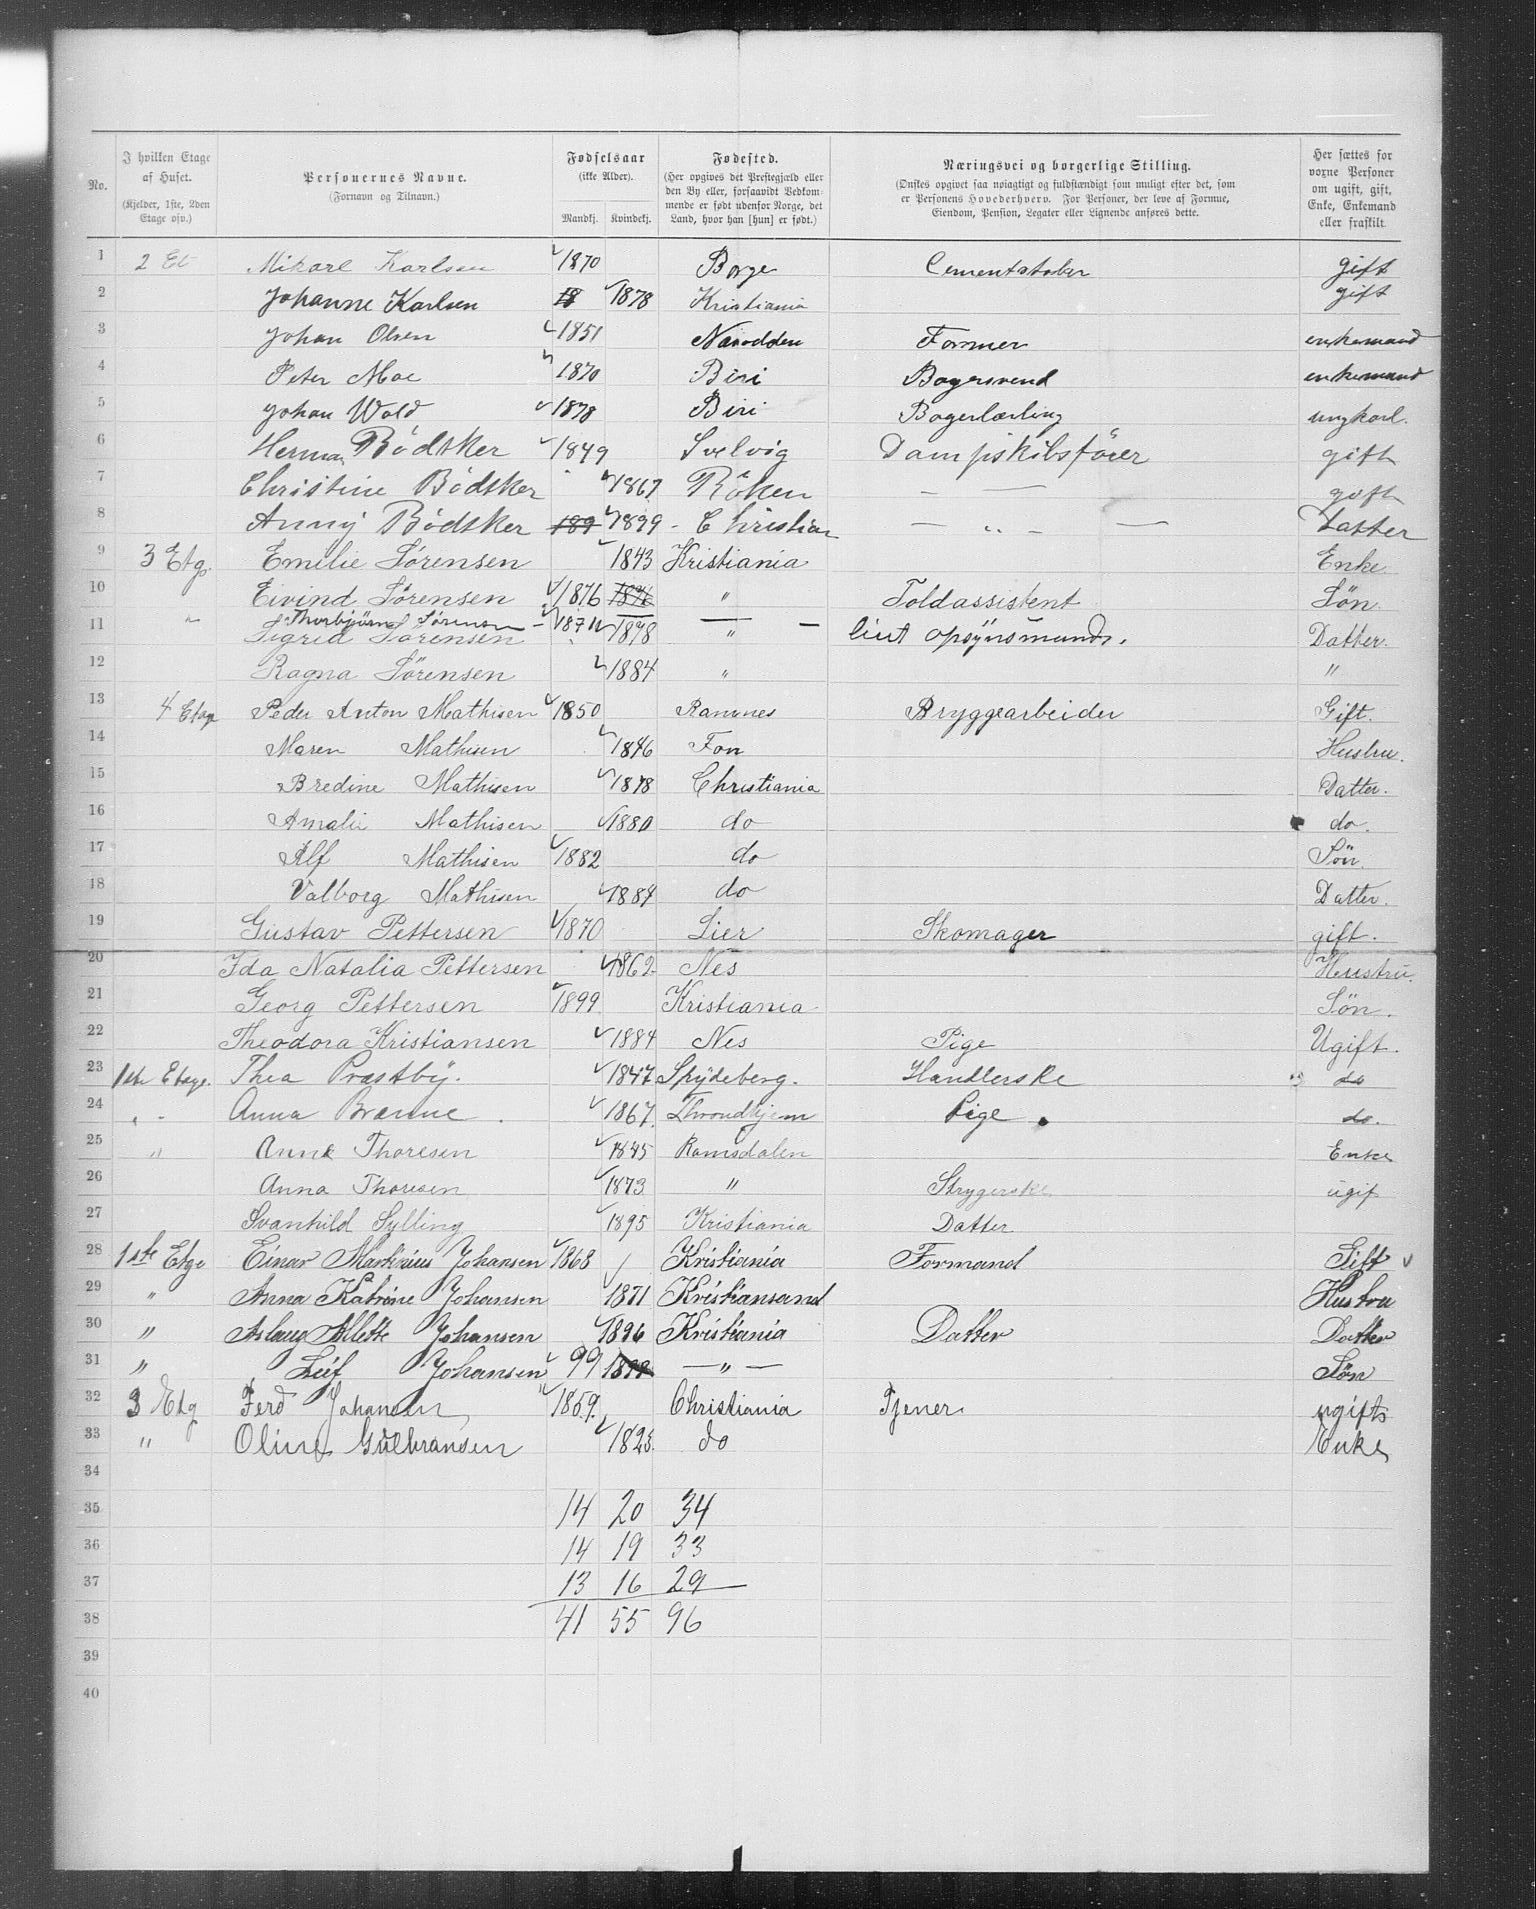 No.
I hvilken Etage af Huset. (Kjelder, 1ste, 2den Etage osv.)
Personernes Navne. (Fornavn og Tilnavn.)
Fødselsaar (ikke Alder). Mandkj. Kvindekj.
Fødested. (Her opgives det Prestegjæld eller den By eller, forsaavidt Vedkommende er født udenfor Norge, det Land, hvor han [hun] er født.)
Næringsvei og borgerlige Stilling. (Ønskes opgivet saa nøiagtigt og fuldstændigt som muligt efter det, som er Personens Hovederhverv. For Personer, der leve af Formue, Eiendom, Pension, Legater eller Lignende anføres dette.
Her sættes for voxne Personer om ugift, gift, Enke, Enkemand eller fraskilt.
1 2 Et Mikael Karlsen 1870 Borge Cementstøber gift
2 Johanne Karlsen 18 1878 Kristiania gift
3 Johan Olsen 1851 Næsodden Former enkemand
4 Peter Moe 1870 Biri Bagersvend enkemand
5 Johan Wold 1878 Biri Bagerlærling ungkarl.
6 Herman Bödtker 1849 Svelvig Dampskibsförer gift
7 Christine Bödtker 1867 Röken — — gift
8 Anny Bödtker 189 1899 - Christian — „ - — Datter
9 3 Etg. Emilie Sørensen 1843 Kristiania Enke
10 Eivind Sørensen 1876 1876 " Toldassistent Søn.
" Thorbjörn Sørensen - 1871 — —
11 Sigrid Sørensen 1878 " lint opsynsmand. Datter.
12 Ragna Sörensen 1884 " "
13 4 Etage Peder Anton Mathisen 1850 Ramnes Bryggearbeider Gift.
14 Maren Mathisen 1846 Fon Hustru.
15 Bredine Mathisen 1878 Christiania Datter.
16 Amalie Mathisen 1880 do do.
17 Alf Mathisen 1882 do Sön.
18 Valborg Mathisen 1884 do Datter.
19 Gustav Pettersen 1870 Lier Skomager gift.
20 Ida Natalia Pettersen 1862. Nes Hustru.
21 Georg Pettersen 1899 Kristiania Søn.
22 Theodora Kristiansen 1884 Nes Pige Ugift.
23 1ste Etage. Thea Præstby. 1847 Spydeberg. Handlerske do
24 " - Anna Brænne. 1867. Throndhjem Pige do.
25 " Anne Thoresen 1845 Romsdalen Enke
26 Anna Thoresen 1873 " Strygerske ugif
27 Svanhild Sylling 1895 Kristiania Datter
28 1ste Etge Einar Martinius Johansen 1868 Kristiania Formand Gift
29 " Anna Katrine Johansen 1871 Kristiansand Hustru
30 " Aslaug Allette Johansen 1896 Kristiania Datter Datter
31 " Leif Johansen 99 1899 — " — Søn
32 3 Etg Ferd Johansen 1859. Christiania Tjener ugift
33 " Oline Gulbransen 1825. do Enke
34
35 14 20 34
36 14 19 33
37 13 16 29
38 41 55 96
39
40